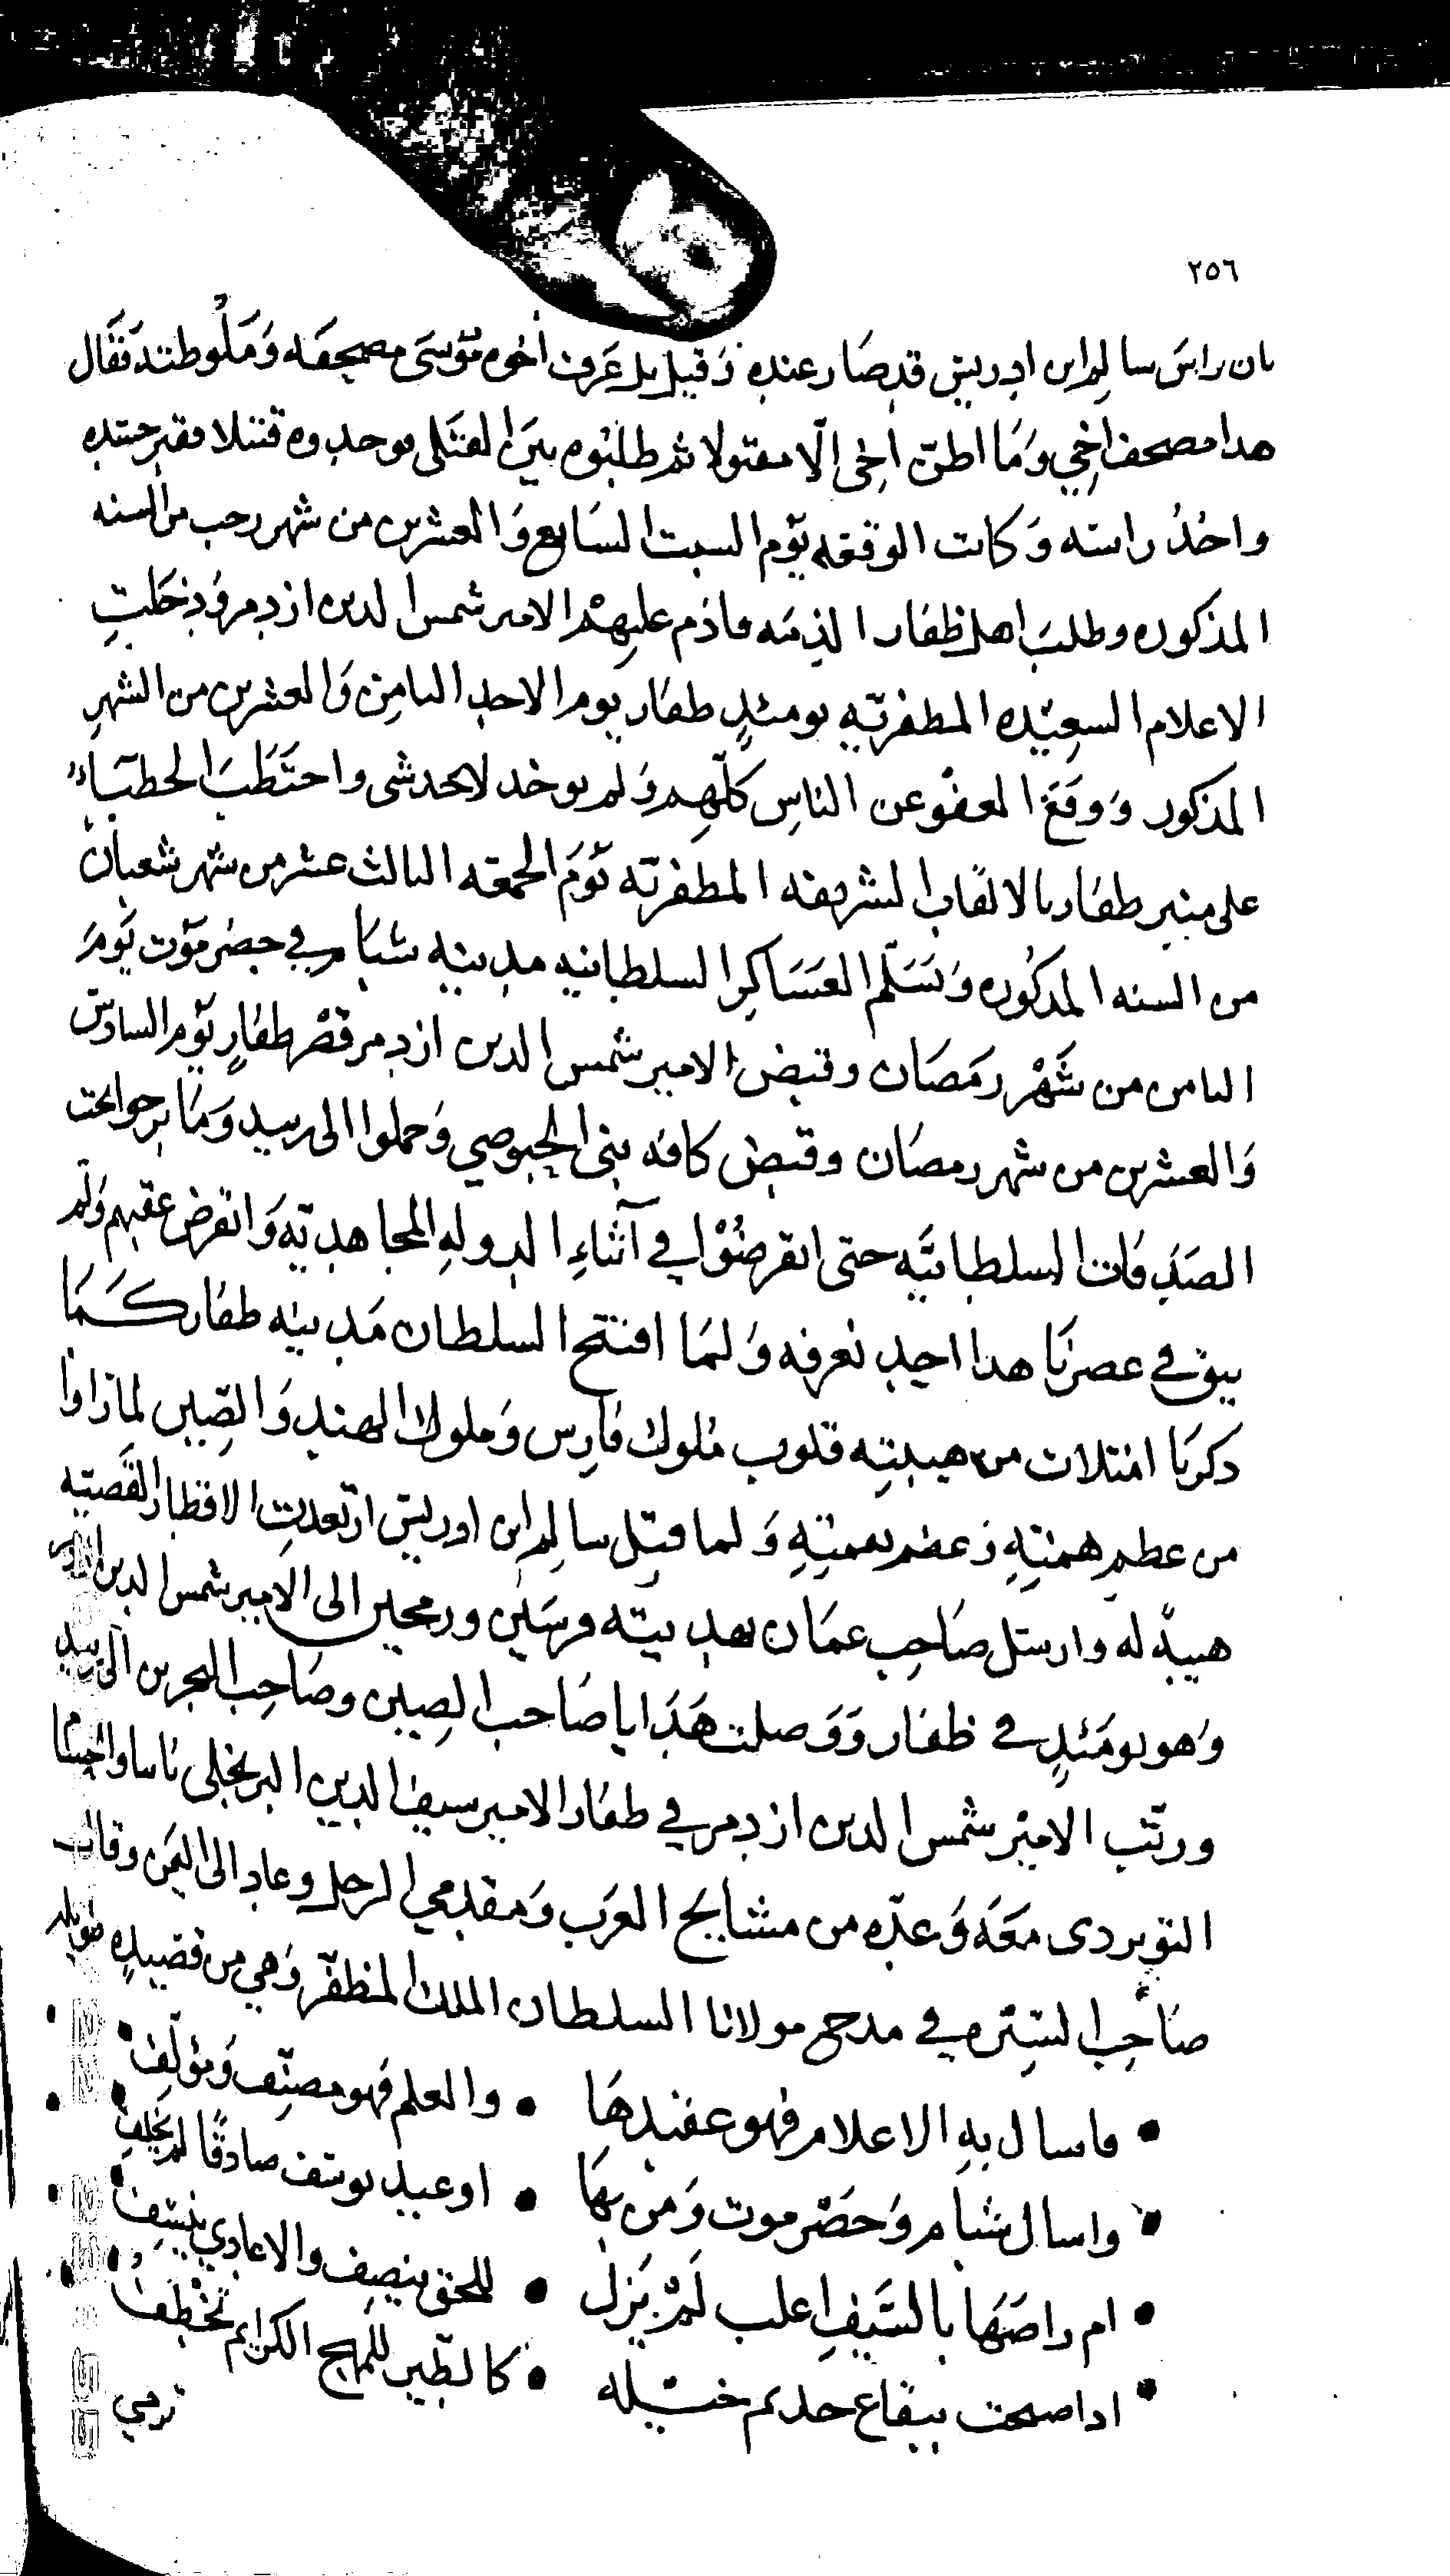 ٢٥٦
بان راس سالم ابن ادريس قد صار عنده وقيل بل عرف اخوه موسى مصحفه فقال
هدا مصحف اخي وما اظن اخى الا مقتولا ثم طلبوه بين القتلى فوجدوه قتيلا فقبر جسده
واخذ راسه وكانت الوقعه يوم السبت السابع والعشرين من شهر رجب من السنه
المذكوره وطلب اهل ظفار الذمه فاذم عليهم الامير شمس الدين ازدمر ودخلت
الاعلام السعيده المظفريه يومئذ ظفار يوم الاحد الثامن والعشرين من الشهر
المذكور ووقع العفو عن الناس كلهم ولم يوخد لاحد شى واختطب الخطباء
على منبر ظفار بالالقاب الشريفه المظفريه يوم الجمعه الثالث عشر من شهر شعبان
من السنه المذكوره وتسلم العساكر السلطانيه مدينه شبام في حضرموت يوم
الثامن من شهر رمضان وقبض الامير شمس الدين ازدمر قصر ظفار يوم السادس
والعشرين من شهر رمضان وقبض كافه بني الحبوضي وحملوا الى زبيد وما برحوا تحت
الصدقات السلطانيه حتى انقرضوا في آثناء الدوله المجاهديه وانقرض عقبهم ولم
يبق في عصرنا هدا احد نعرفه ولما افتتح السلطان مدينه ظفار كما
دكرنا امتلات من هيبته قلوب ملوك فارس وملوك الهند والصين لما راوا
من عظم همته وعضم نعمته ولما قتل سالم ابن ادريس ارتعدت الاقطار القصيه
هيبة له وارسل صاحب عمان بهديته فرسين ورمحين الى الامير شمس الدين
وهو يومئذ في ظفار ووصلت هدايا صاحب الصين وصاحب البحرين الى زبيد
ورتب الامير شمس الدين ازدمر في ظفار الامير سيف الدين
معه وعده من مشايخ العرب ومقدمي الرجل وعاد الى اليمن وقال
صاحب السيره في مدح مولانا السلطان الملك المظفر وهي من قصيده طويله
• فاسال به الاعلام فهو عقيدها • والعلم فهو مصنف ومؤلف •
• واسال شبام وحضرموت ومن بها • او عبيد يوسف صادقا لم يخلف •
• ام راضها بالسيف اغلب لم يزل • للحق ينصف والاعادي ينسف •
• ادا صبحت ببقاع خيله • كالطير للمهج الكرايم تخطف •
ترمي